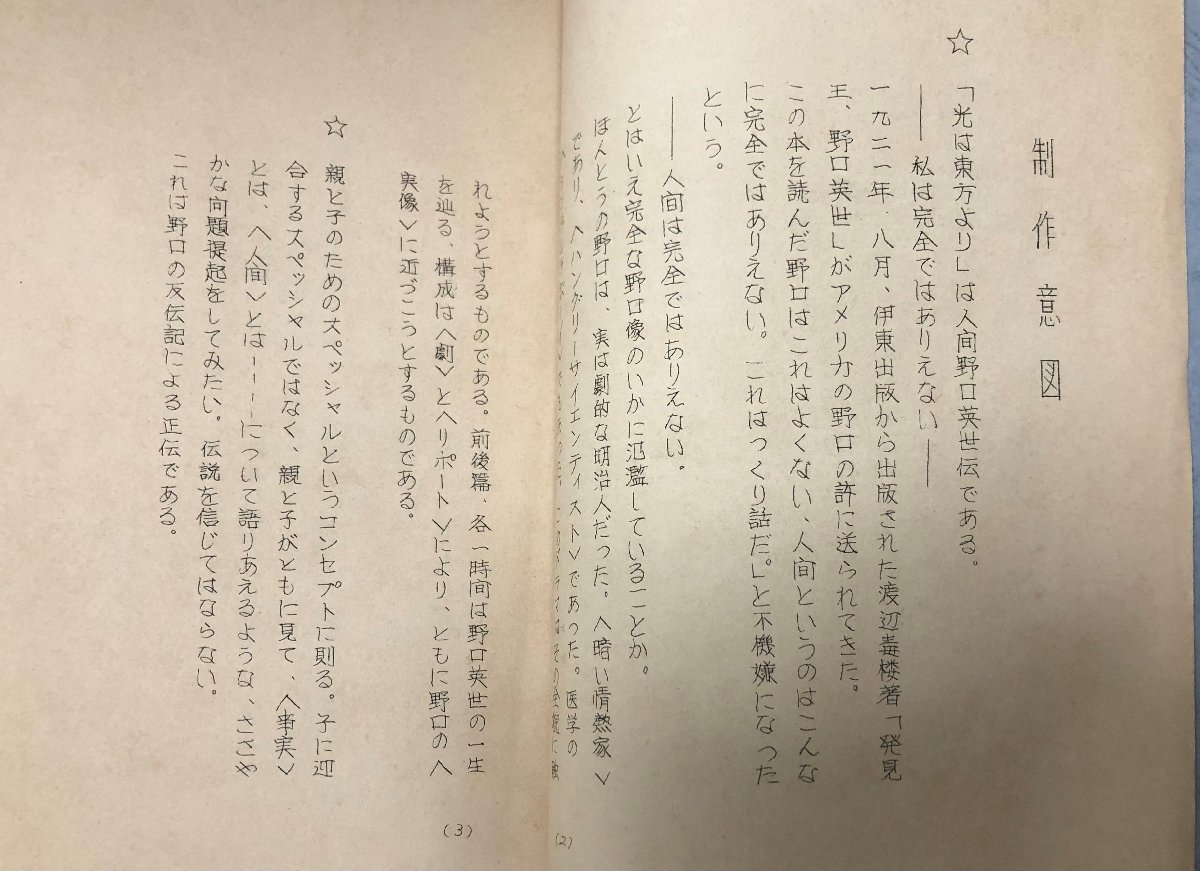 制作意図
☆
「光は東方より」は人间野口英世伝である。
――私は完全ではありえない――
一九二一年・八月、伊東出版から出版された渡辺毒楼著「発見
王、野口英世」がアメリカの野口の許に送られてきた。
この本を読んだ野口はこれはよくない、人间というのはこんな
に完全ではありえない。これはつくり話だ。」と不機嫌になった
という。
――人间は完全ではありえない。
とはいえ完全な野口像のいかに氾濫していることか。
ほんとうの野口は、実は劇的な明治人だった。〈暗い情熱家〉
であり、〈ハングリーサイエンティスト〉であった。医学の
れようとするものである。前後篇、各一時间は野口英世の一生
を辿る、構成は〈劇〉と〈リポート〉により、ともに野口の〈
実像〉に近づこうとするものである。
☆
親と子のためのスペッシャルというコンセプトに則る。子に迎
合するスペッシャルではなく、親と子がともに見て、〈事実〉
とは、〈人间〉とは―――について語りあえるような、ささや
かな问題提起をしてみたい。伝説を信じてはならない。
これは野口の反伝記による正伝である。
(2)
(3)